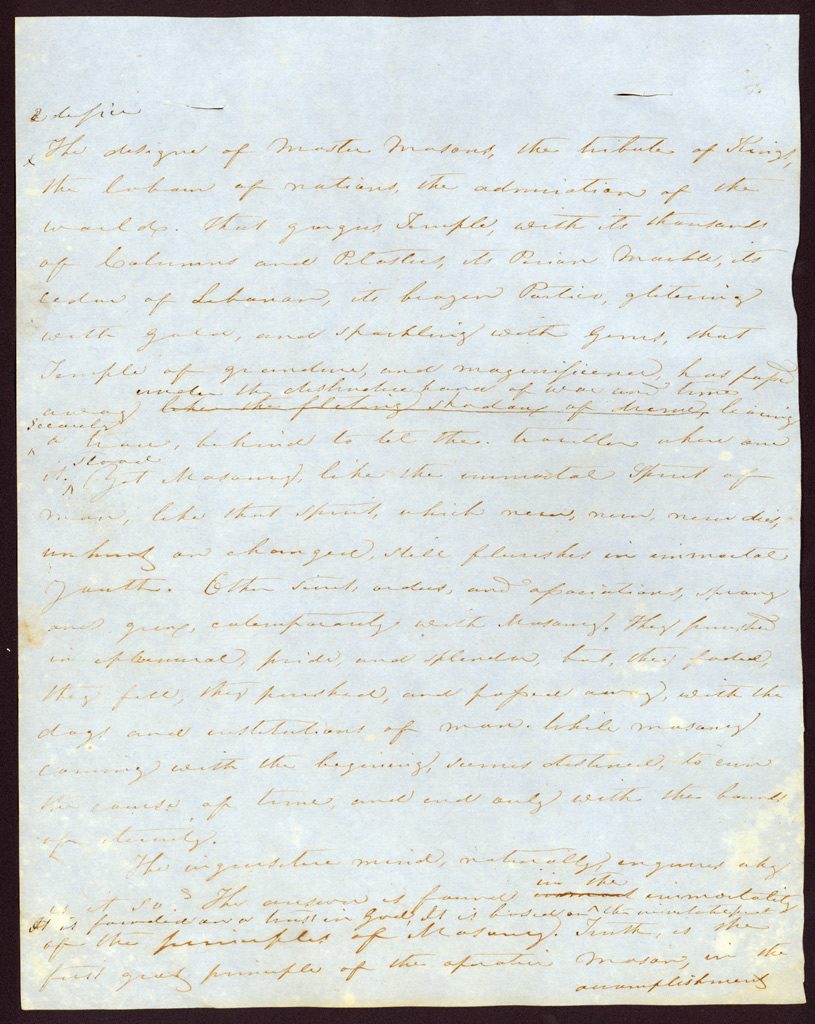 Edifice
The designe of Master Masons, the tribute of Kings,
the of nations, the admiration of the
worlds. that gorgus Temple, with its thousands
of Columns and Pilasters, its Parian Marble, its
cedar of Lebanan, its brazen Portico, glittering
with gold, and sparkling with Gems, that
Temple of grandure, and magnificence, has passed
under the destructive hand of war and time
away like the fleting shadows of leaving
scearcely
a trace, behind to tel the traveller where one
stood
it. Yet Masonry, like the immortal Spirit of
man, like that spirit, which never, never, never dies,
unhurt or changed, still flurishes in immortal
Youth. Other sects, orders, and associations, sprang
and grew, cotemporary with Masonry. They
in pride, and splendor, but, they faded,
they fell, they perished, and passed away, with the
days and institutions of man. While masonry
coming with the begining, seems destined, to run
the course of time, and end only with the bounds
of eternity.
The inquisitive mind, naturally, enquires why
in the
is it so? The answer is found immortality
It is founded on a trust in God, It is based on the
of the principles of Masonry. Truth, is the
first great principle of the operative Mason, in the
accomplishment